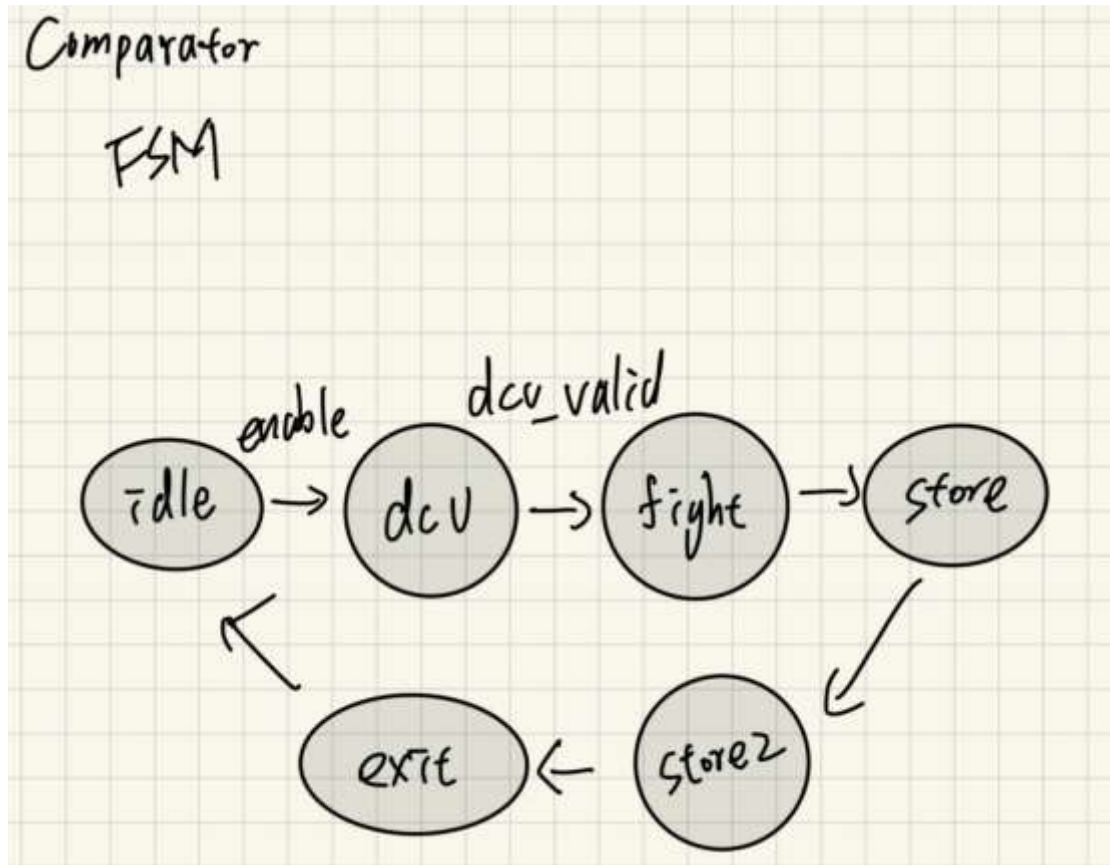 Comparator
FSM
enable
dcu_valid
idle
dcu
fight
store
exit
store2